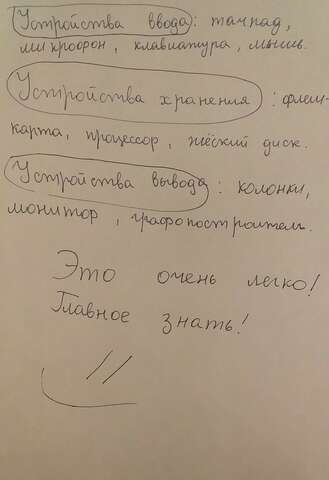 Устройства ввода: тачпад,
микрофон, клавиатура, мышь.
Устройства хранения: флеш-
карта, процессор, жёский диск.
Устройства вывода: колонки,
монитор, графопостроитель.
Это очень легко!
Главное знать!